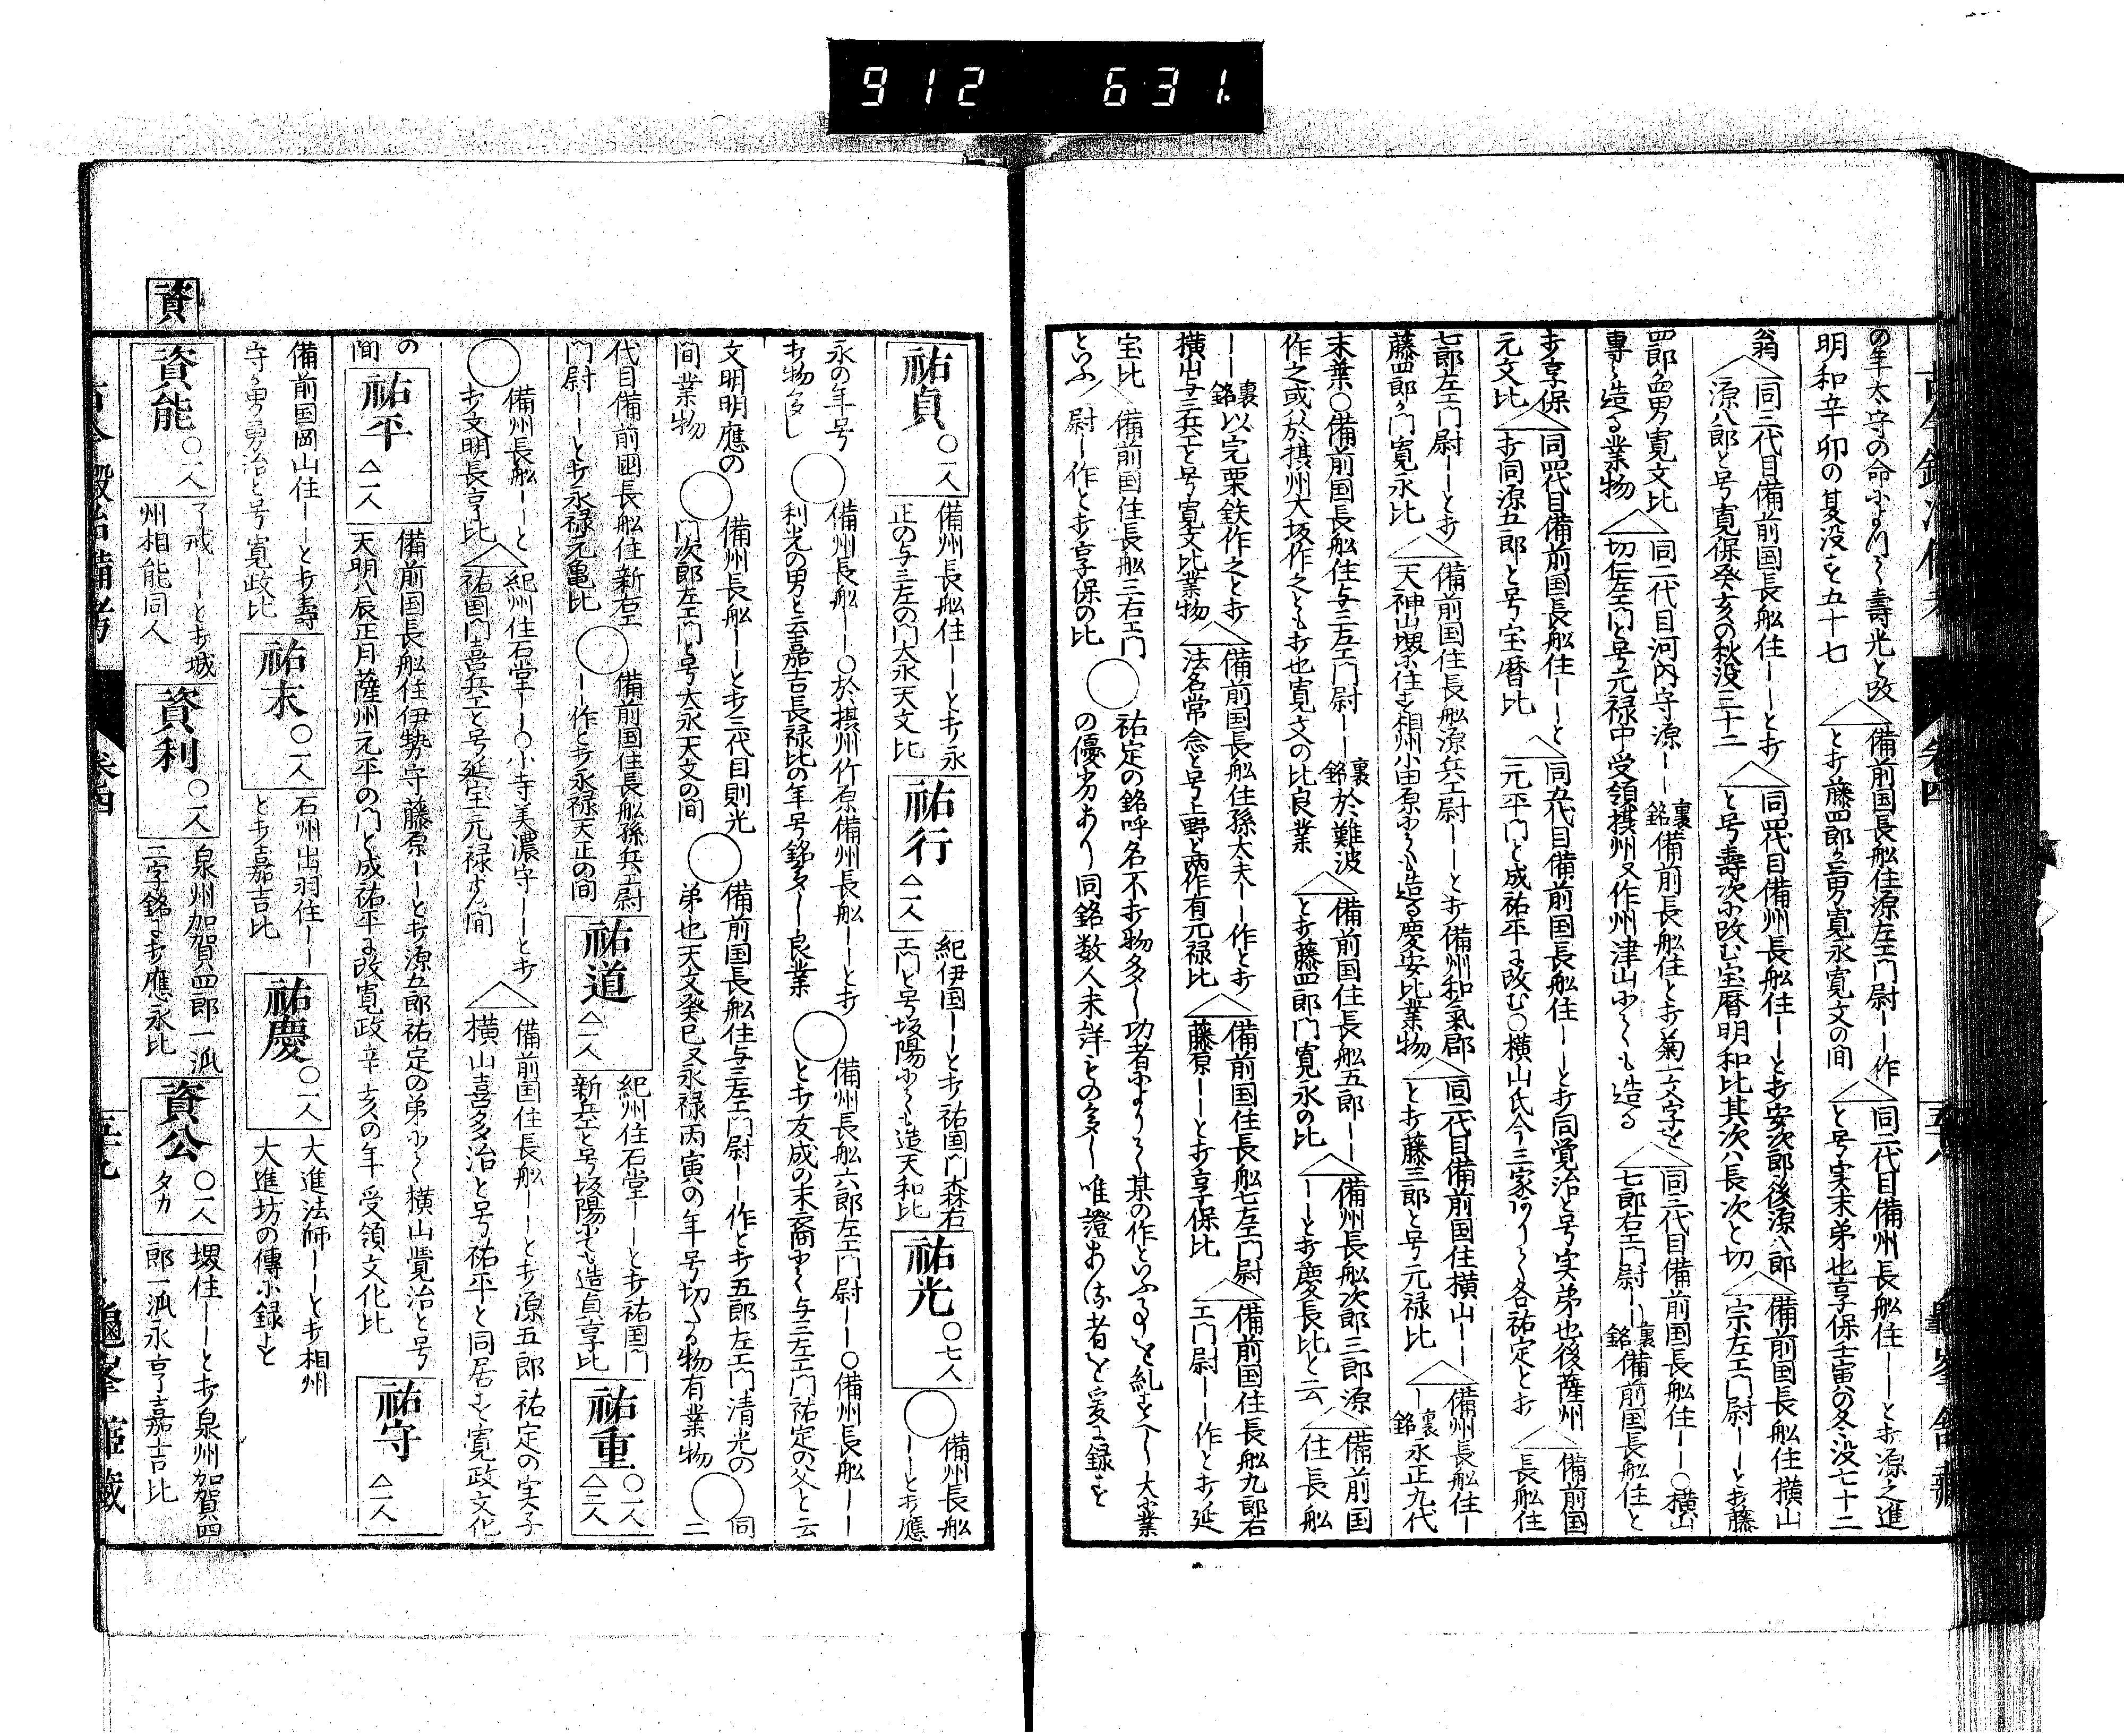 912 631.
古今鍛冶備考 卷四 五十八 龜峯舘藏
の年太守の命によつて壽光と改
明和辛卯の夏没す五十七
△備前国長舩住源左エ門尉――作
と打藤四郎ゟ二男寛永寛文の間
△同二代目備州長舩住――と打源之進
と号実末弟也享保壬寅の冬没七十二
翁△同三代目備前国長舩住――と打
源八郎と号寛保癸亥の秋没三十二
△同四代目備州長舩住――と打安次郎後源八郎
と号壽次に改む宝暦明和比其次ハ長次と切
△備前国長舩住横山
宗左エ門尉――と打藤
四郎ゟ男寛文比
専ら造る業物
△同二代目河内守源――裏銘備前長舩住と打菊一文字を
切仁左エ門と号元禄中受領摂州又作州津山にても造る
△同三代目備前国長舩住――○横山
七郎右エ門尉――裏銘備前国長舩住と
打享保
元文比
△同四代目備前国長舩住――と
打同源五郎と号宝暦比
△同九代目備前国長舩住――と打同覚治と号実弟也後薩州
元平門と成祐平に改む○横山氏今三家ありて各祐定と打
△備前国
長舩住
七郎左エ門尉――と打
藤四郎ゟ門寛永比
△備前国住長舩源兵エ尉――と打備州和氣郡
天神山堺に住す相州小田原にても造る慶安比業物
△同二代目備前国住横山――
と打藤三郎と号元禄比
△備州長舩住―
―裏銘永正九代
末葉○備前国長舩住与三左エ門尉――裏銘於難波
作之或於摂州大坂作之とも打也寛文の比良業
△備前国住長舩五郎――
と打藤四郎門寛永の比
△備州長舩次郎三郎源
――と打慶長比と云
△備前国
住長舩
――裏銘以宍栗鉄作之と打
横山与三兵エと号寛文比業物
△備前国長舩住孫大夫――作と打
法名常念と号上野と両作有元禄比
△備前国住長舩七左エ門尉
藤原――と打享保比
△備前国住長舩九郎右
エ門尉――作と打延
宝比
といふ
△備前国住長舩三右エ門
尉―作と打享保の比
○祐定の銘呼名不打物多し功者によりて某の作といふ事を糺すへし大に業
の優劣あり同銘数人未詳もの多し唯證ある者を爰に録す
祐貞 ○一人
備州長舩住――と打永
正の与三左の門大永天文比
祐行 △一人
紀伊国――と打祐国門森右
エ門と号坂陽にても造天和比
祐光 ○七人
○備州長舩
――と打應
永の年号
打物多し
○備州長舩――○於摂州竹原備州長舩――と打
利光の男と云嘉吉長禄比の年号銘多し良業
○備州長舩六郎左エ門尉――○備州長舩――
と打友成の末裔にて与三左エ門祐定の父と云
文明明應の
間業物
○備州長舩――と打三代目則光
門次郎左エ門と号大永天文の間
○備前国長舩住与三左エ門尉――作と打五郎左エ門清光の
弟也天文癸巳又永禄丙寅の年号切たる物有業物
○同
二
代目備前國長舩住新右エ
門尉――と打永禄元亀比
○備前国住長舩孫兵エ尉
――作と打永禄天正の間
祐道 △一人
紀州住石堂――と打祐国門
新兵エと号坂陽にても造貞享比
祐重 ○一人 △三人
○備州長舩――と
打文明長享比
△紀州住石堂――○小寺美濃守――と打
祐国門喜兵エと号延宝元禄の間
△備前国住長舩――と打源五郎祐定の実子
横山喜多治と号祐平と同居す寛政文化
の
間
祐平 △一人
備前国長舩住伊勢守藤原――と打源五郎祐定の弟にて横山覺治と号
天明八辰正月薩州元平の門と成祐平に改寛政辛亥の年受領文化比
祐守 △一人
備前国岡山住――と打壽
守ゟ男勇治と号寛政比
祐末 ○一人
石州出羽住――
と打嘉吉比
祐慶 ○一人
大進法師――と打相州
大進坊の傳に録す
資
資能 ○一人
了戒――と打城
州相能同人
資利 ○一人
泉州加賀四郎一派
二字銘に打應永比
資公 ○一人 タカ
堺住――と打泉州加賀四
郎一派永享嘉吉比
古今鍛冶備考 卷四 五十九 龜峯舘藏